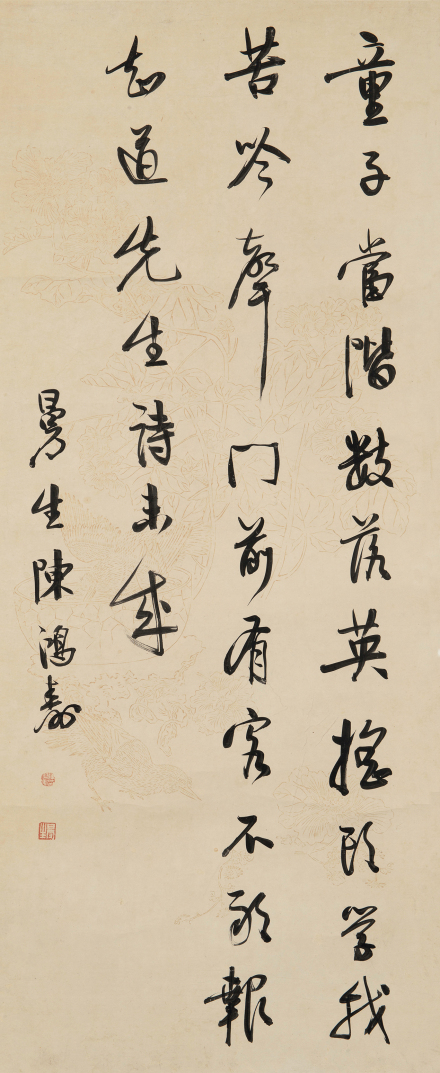 童子當階數落英搖頭學我
苦吟聲門前有客不敢報
知道先生詩未成
曼生陳鴻壽